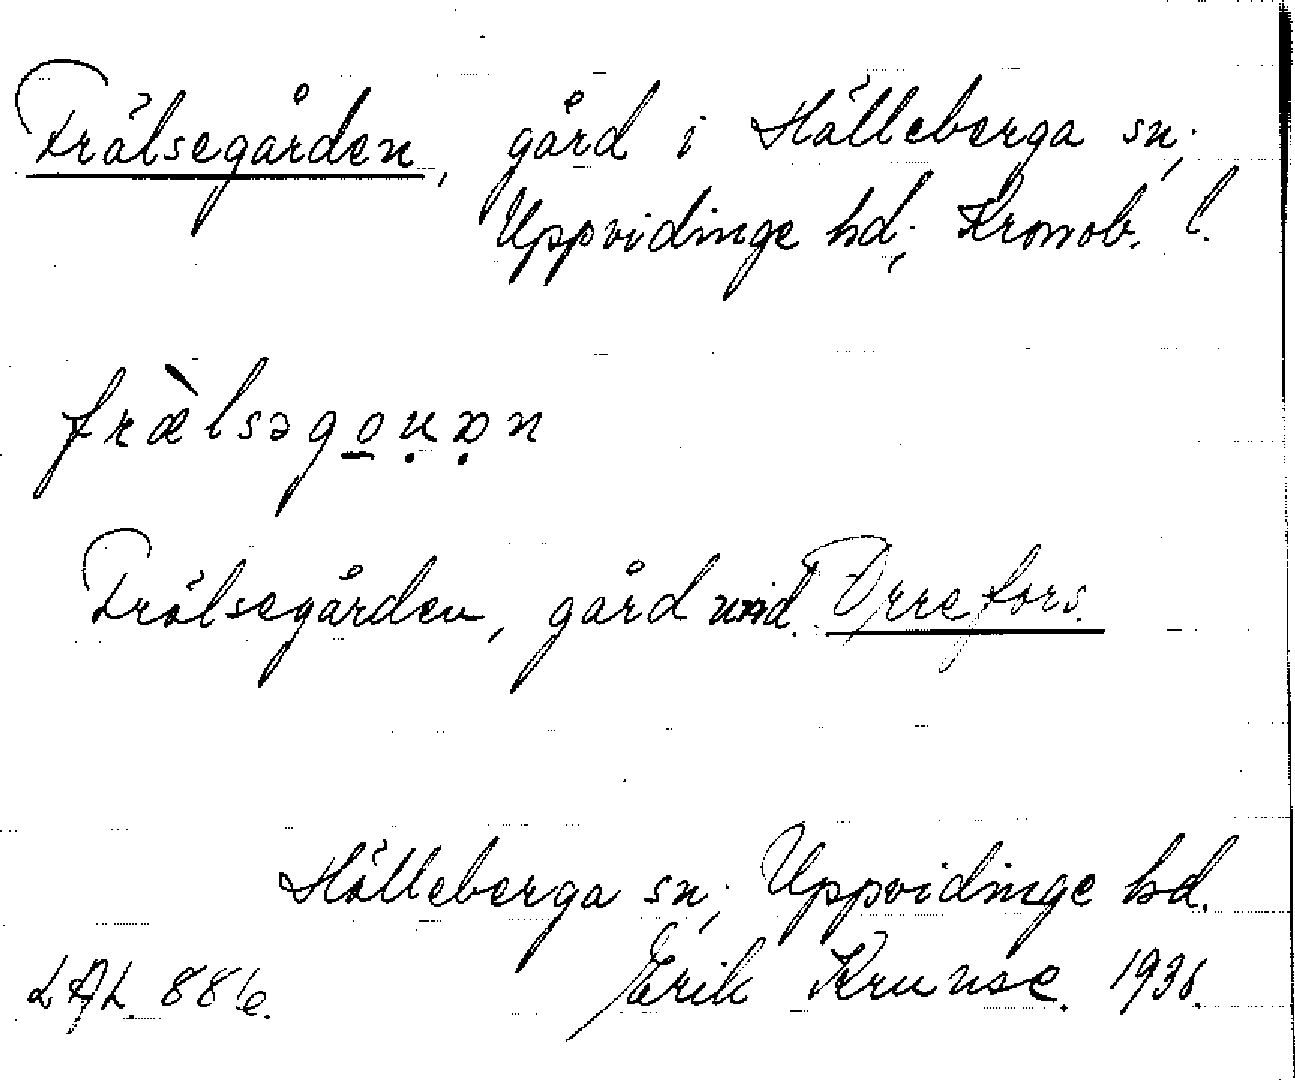 Frälsegården, gård i Hälleberga sn;
Uppvidinge hd; Kronob. l.
fræ̀lsəgo̲ụəṇ
Frälsegården, gård vid Orrefors.
Hälleberga sn; Uppvidinge hd.
LAL. 881e. Erik Krunse. 1936.